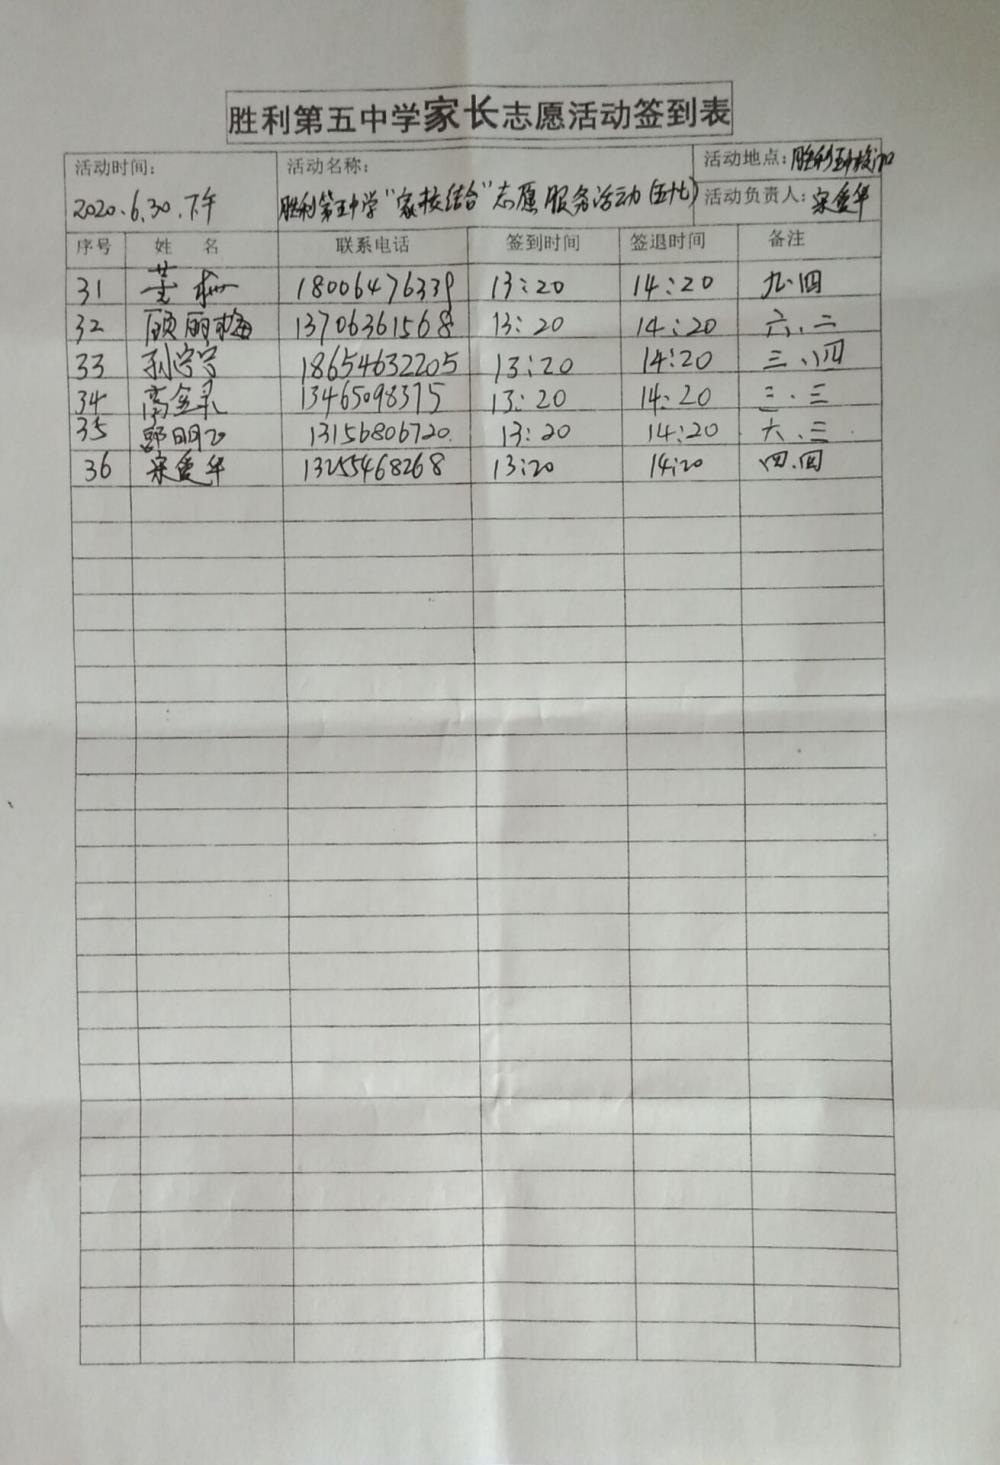 胜利第五中学家长志愿活动签到表
活动时间： 活动名称： 活动地点：胜利五中校门口
2020.6.30.下午 胜利第五中学“家校结合”志愿服务活动(五十七) 活动负责人：宋爱华
序号 姓 名 联系电话 签到时间 签退时间 备注
31 18006476339 13:20 14:20 九.四
32 顾丽梅 13706361568 13:20 14:20 六.二
33 孙宁宁 18654632205 13:20 14:20 三.四
34 高金录 13465098375 13:20 14:20 三.三
35 郭明 13156806720. 13:20 14:20 六.三
36 宋爱华 13255468268 13:20 14:20 四.四